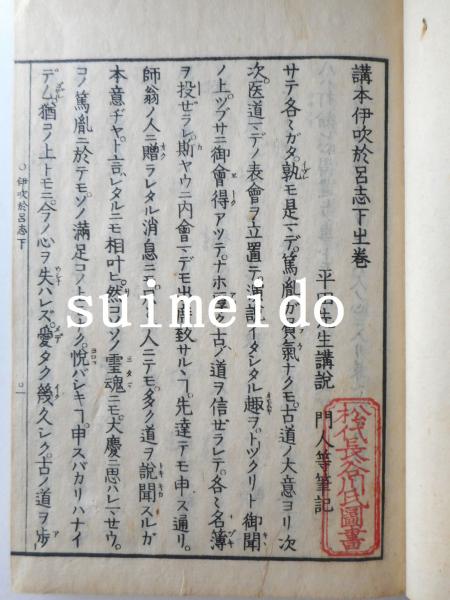 講本伊吹於呂志下之巻
平田先生講説 門人等筆記
サテ各〻ガタ。孰モ是マデ。篤胤ガ負氣ナクモ。古道ノ大意ヨリ次
次。医道マデノ表會ヲ立置テ。演説イタレタル趣ヲ。トツクリト御聞
ノ上。ツブサニ御會得アツテ。ナホ厚ク古ノ道ヲ信ゼラレテ。各〻名簿
ヲ投ゼラレ。斯ヤウニ内會マデモ出席致サルヽ「。先達テモ申ス通リ。
師翁ノ人ニ贈ラレタル消息ニ
人ニテモ。多ク道ヲ説聞スルガ
本意ヂヤト言レタルニモ相叶ヒ。然コソノ霊魂ニモ。大慶ニ思ハレマセウ。
ヨノ篤胤ニ於テモ。ソノ満足コノ上ナク。悦バレキ「。申スバカリハナイ
デム。猶コノ上トモニ。今ノ心ヲ失ハレズ。愛タク幾久レク。古ノ道ヲ歩
伊吹於呂志下
一
松代長谷川氏圖書
suimeido